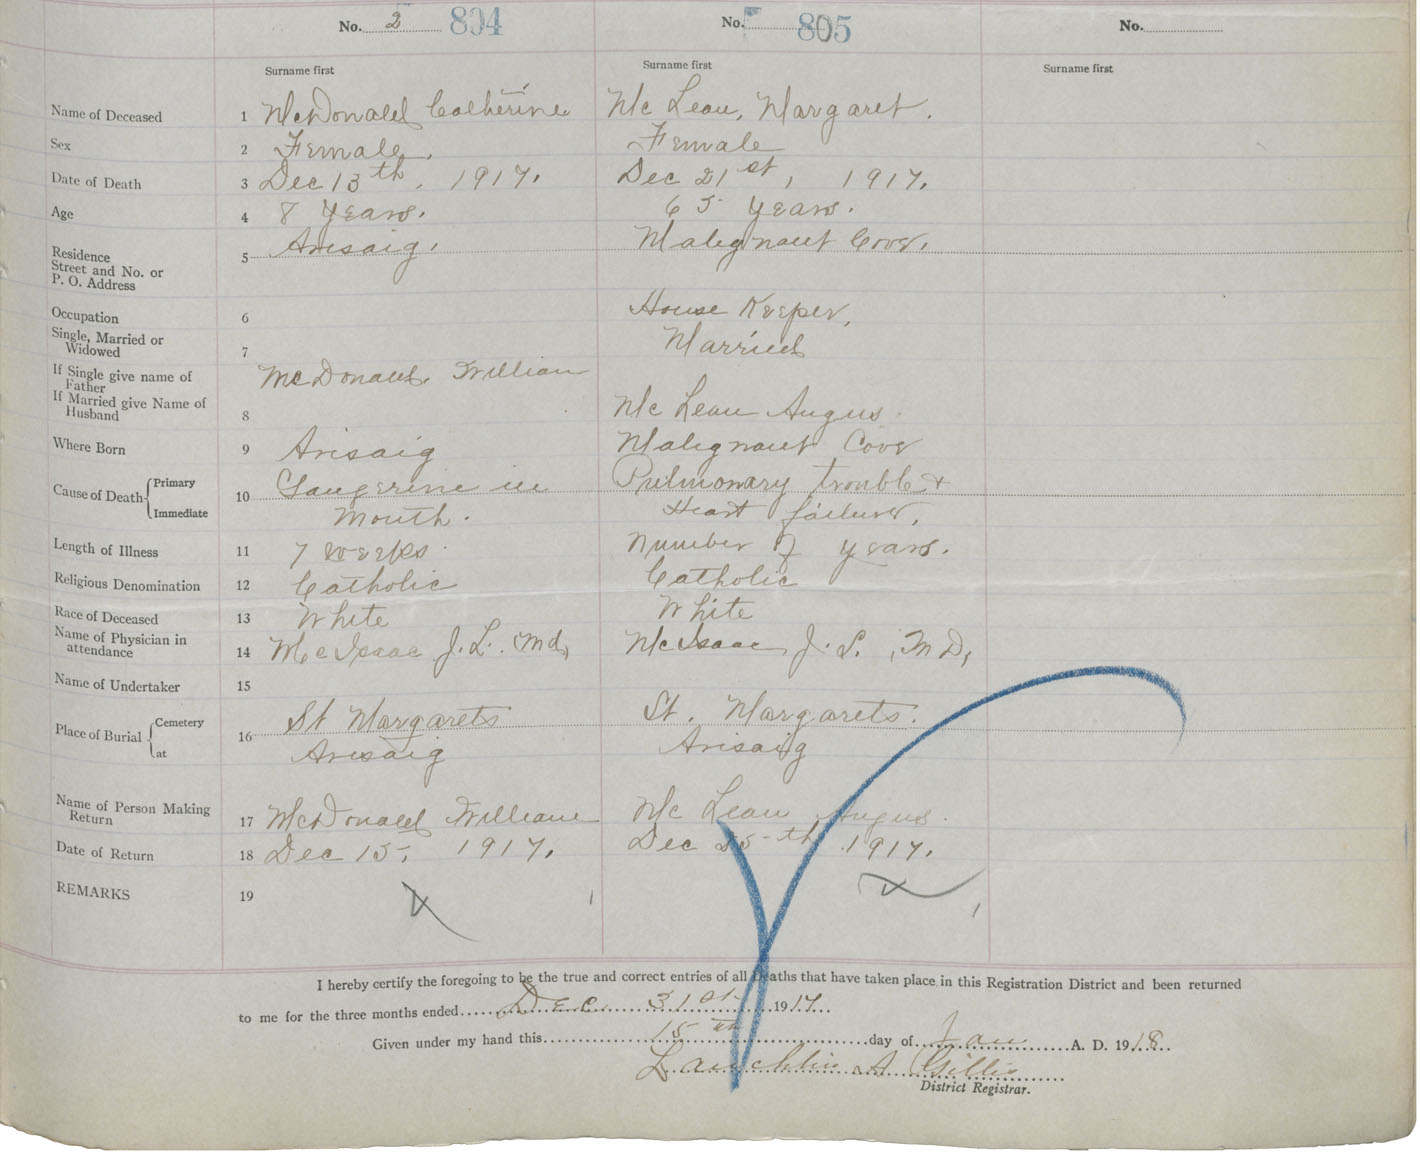 No. 2 804 No. 805 No.
Surname first Surname first Surname first
Name of Deceased 1 McDonald Catherine Mc Lean, Margaret.
Sex 2 Female. Female
Date of Death 3 Dec 13th. 1917. Dec 21st, 1917.
Age 4 8 Years. 65 years.
Residence
Street and No. or
P. O. Address 5 Arisaig. Malignant Cove.
Occupation 6 House Keeper,
Single, Married or
Widowed 7 Married
If Single give name of
Father McDonald, William
If Married give Name of
Husband 8 Mc Lean Angus.
Where Born 9 Arisaig Malignant Cove
Cause of Death Primary 10 Gangerine in Pulmonary trouble +
Immediate Mouth. Heart failure,
Length of Illness 11 7 weeks. number of years.
Religious Denomination 12 Catholic Catholic
Race of Deceased 13 White White
Name of Physician in
attendance 14 McIsaac J. L. Md, McIsaac, J. L., M D,
Name of Undertaker 15
Place of Burial Cemetery 16 St Margarets St. Margarets.
at Arisaig Arisaig
Name of Person Making
Return 17 McDonald William Mc Lean Angus.
Date of Return 18 Dec 15, 1917. Dec 25th 1917.
REMARKS 19
I hereby certify the foregoing to be the true and correct entries of all Deaths that have taken place in this Registration District and been returned
to me for the three months ended Dec 31st 1917
Given under my hand this 15th day of Jan A. D. 1918
Lauchlin A Gillis
District Registrar.